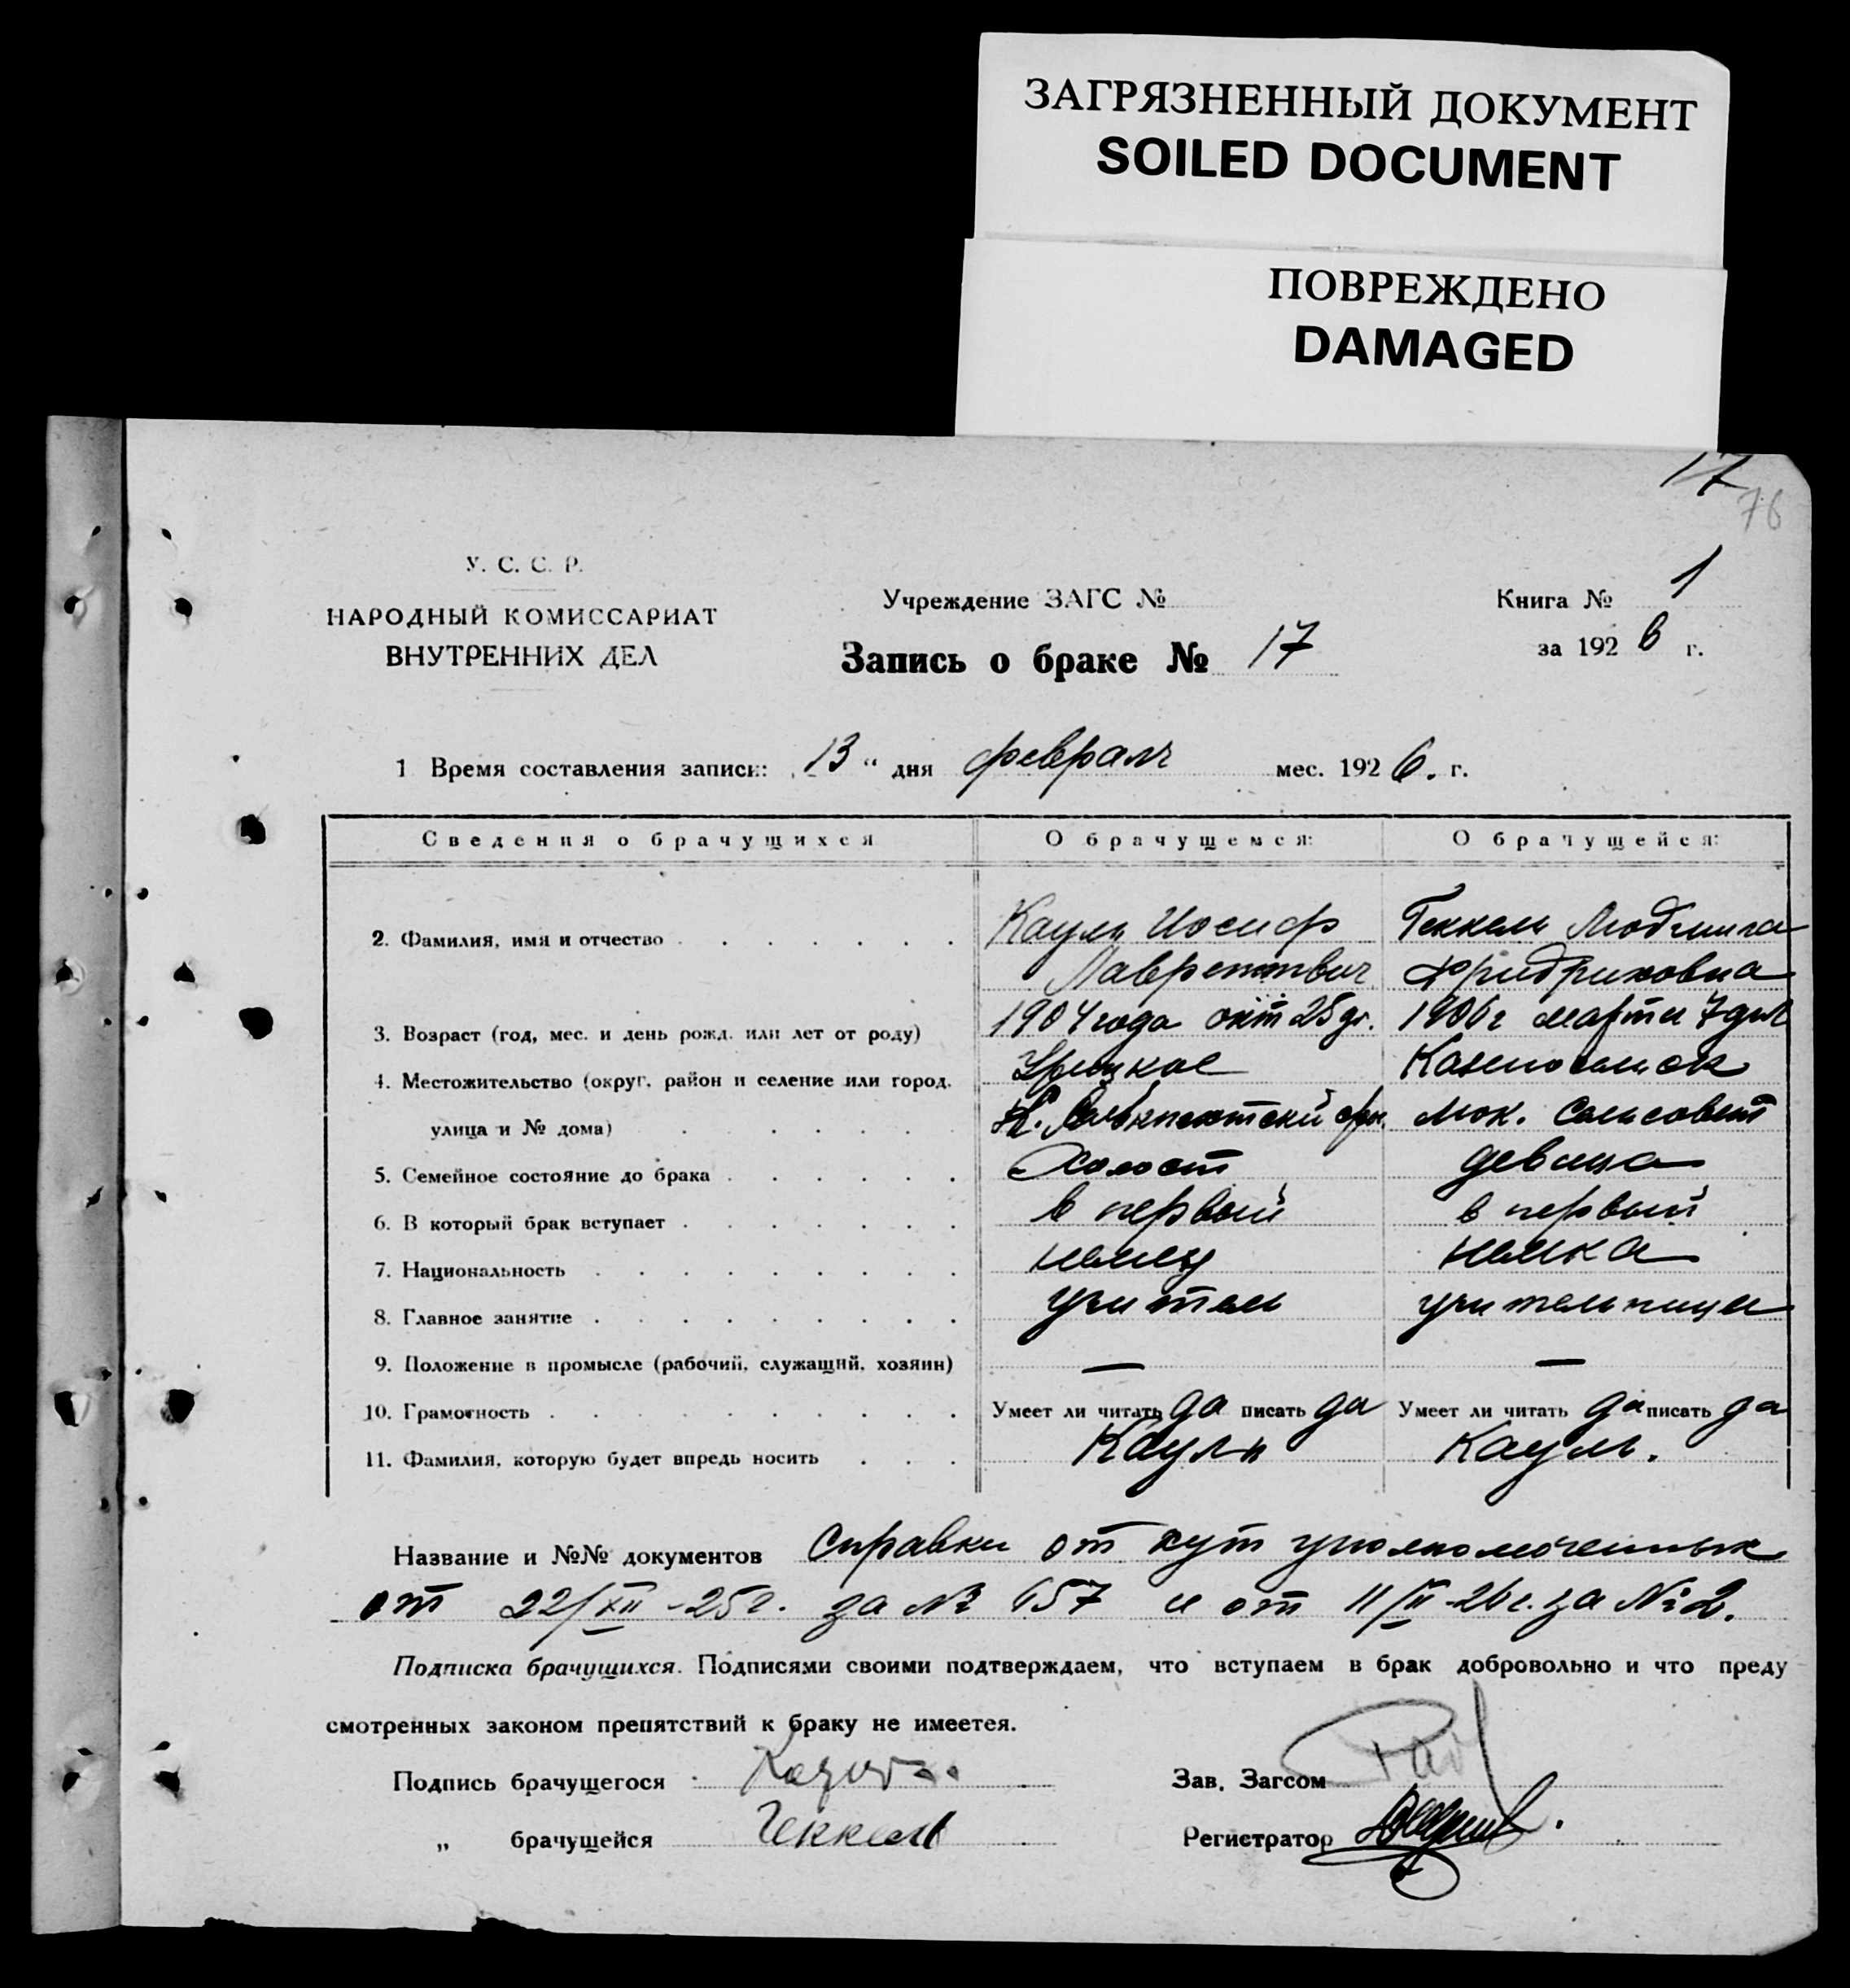 ЗАГРЯЗНЕННЫЙ ДОКУМЕНТ
SOILED DOCUMENT
ПОВРЕЖДЕНО
DAMAGED
17
76
У. С. С. Р.
НАРОДНЫЙ КОМИССАРИАТ
ВНУТРЕННИХ ДЕЛ
Учреждение ЗАГС №
Запись о браке № 17
Книга № 1
за 1926 г.
1 Время составления записи: 13 " дня февраля мес. 1926. г.
Сведения о брачущихся О брачущемся: О брачущейся:
2. Фамилия, имя и отчество Кауль Иосиф Геккель Людмила
Лаврентьвич Фридриховна
3. Возраст (год, мес. и день рожд. или лет от роду) 1904 года окт 25 дн. 1906 г марта 7 дня
4. Местожительство (округ, район и селение или город,
улица и № дома) сельсовет
5. Семейное состояние до брака Холост девица
6. В который брак вступает в первый в первый
7. Национальность немец немка
8. Главное занятие учитель учительница
9. Положение в промысле (рабочий, служащий, хозяин) — —
10. Грамотность Умеет ли читать да писать да Умеет ли читать да писать да
11. Фамилия, которую будет впредь носить Кауль Кауль.
Название и №№ документов Справки от хут уполномоченных
от 22/XII-25г. за № 657 и от 11/II-26 г. за № 2.
Подписка брачущихся. Подписями своими подтверждаем, что вступаем в брак добровольно и что преду
смотренных законом препятствий к браку не имеется.
Подпись брачущегося Зав. Загсом
„ брачущейся Геккель Регистратор